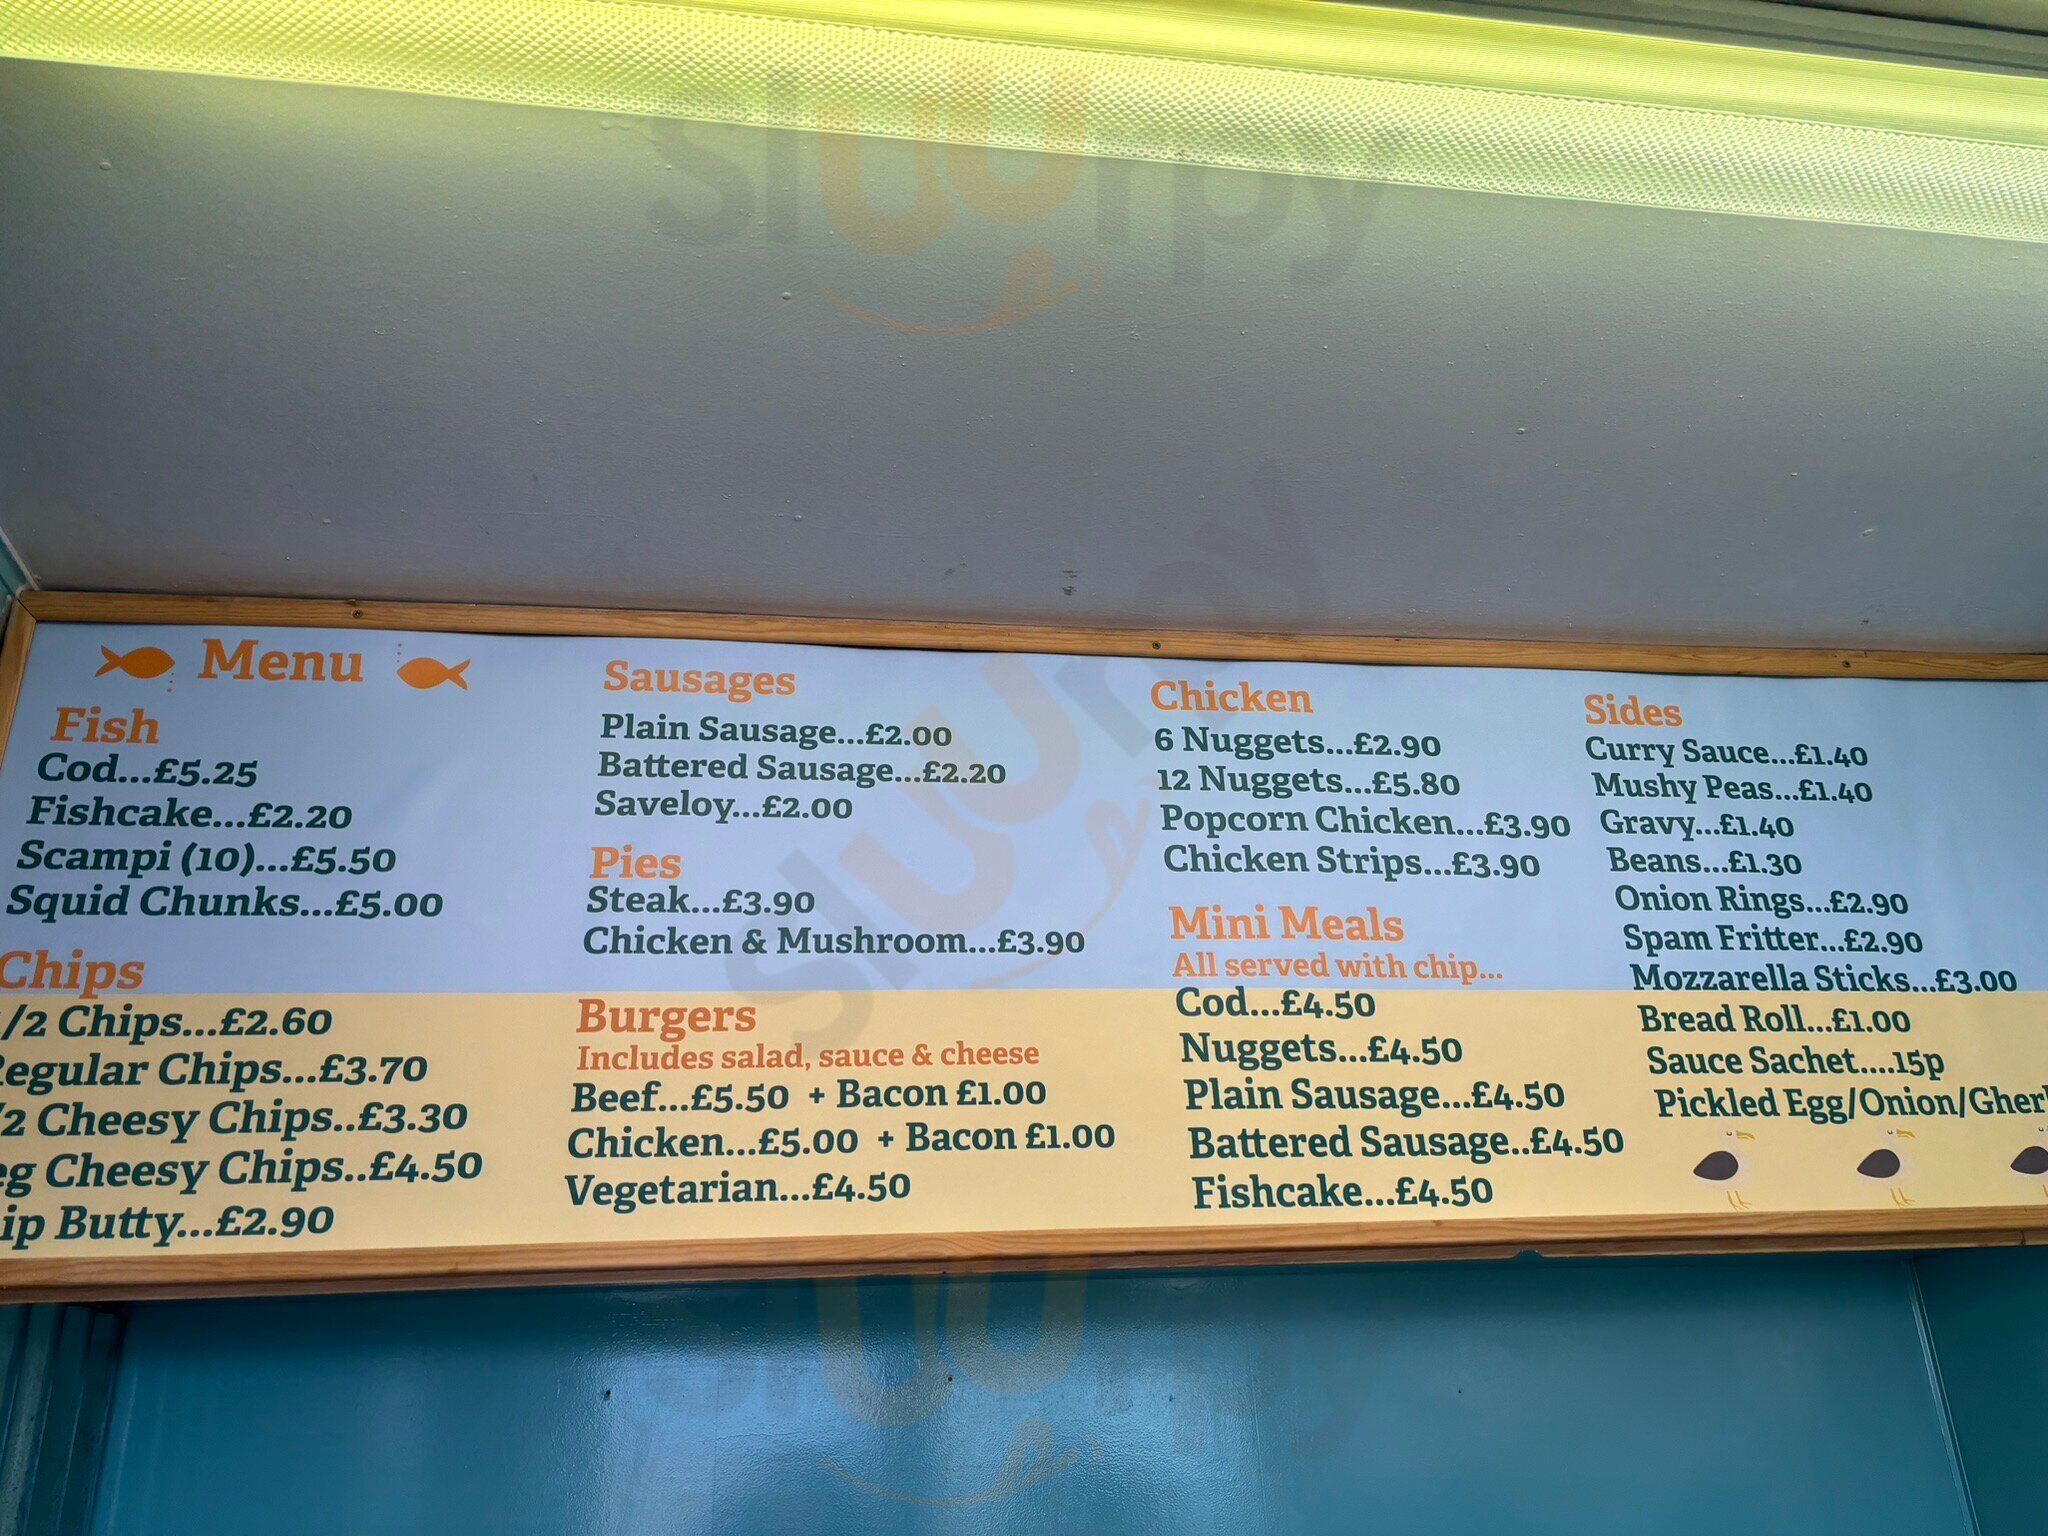 Menu
Fish
Cod...£5.25
Fishcake...£2.20
Scampi (10)...£5.50
Squid Chunks...£5.00
Chips
/2 Chips...£2.60
egular Chips...£3.70
/2 Cheesy Chips..£3.30
eg Cheesy Chips..£4.50
ip Butty...£2.90
Sausages
Plain Sausage...£2.00
Battered Sausage...£2.20
Saveloy...£2.00
Pies
Steak...£3.90
Chicken & Mushroom...£3.90
Burgers
Includes salad, sauce & cheese
Beef...£5.50 + Bacon £1.00
Chicken...£5.00 + Bacon £1.00
Vegetarian...£4.50
Chicken
6 Nuggets...£2.90
12 Nuggets...£5.80
Popcorn Chicken...£3.90
Chicken Strips...£3.90
Mini Meals
All served with chip...
Cod...£4.50
Nuggets...£4.50
Plain Sausage...£4.50
Battered Sausage..£4.50
Fishcake...£4.50
Sides
Curry Sauce...£1.40
Mushy Peas...£1.40
Gravy...£1.40
Beans...£1.30
Onion Rings...£2.90
Spam Fritter...£2.90
Mozzarella Sticks...£3.00
Bread Roll...£1.00
Sauce Sachet....15p
Pickled Egg/Onion/Gher
sluurpy
sluurpy
sluurpy